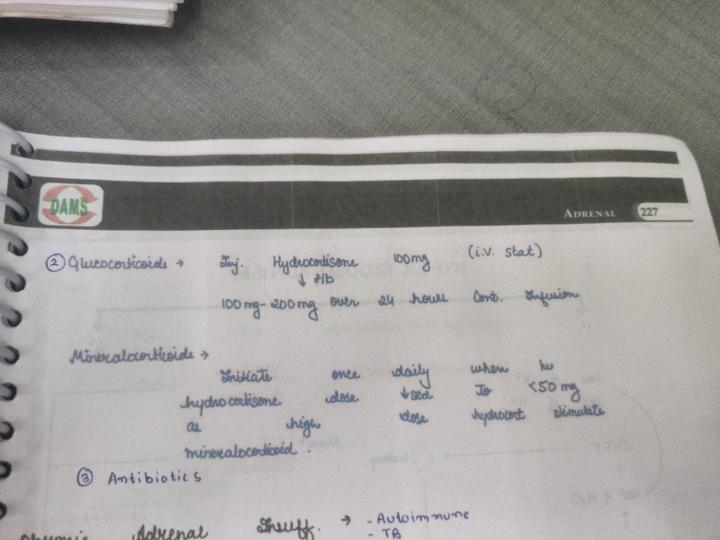 DAMS
ADRENAL 227
② Glucocorticoids → Inj. Hydrocortisone 100mg (i.v. stat)
↓ f/b
100mg-200mg over 24 hours Cont. Infusion
Mineralocorticoids →
Initiate once daily when
hydrocortisone dose ↓sed to <50 mg
as high dose hydrocort stimulate
mineralocorticoid.
③ Antibiotics
Adrenal Insuff. → - Autoimmune
- TB